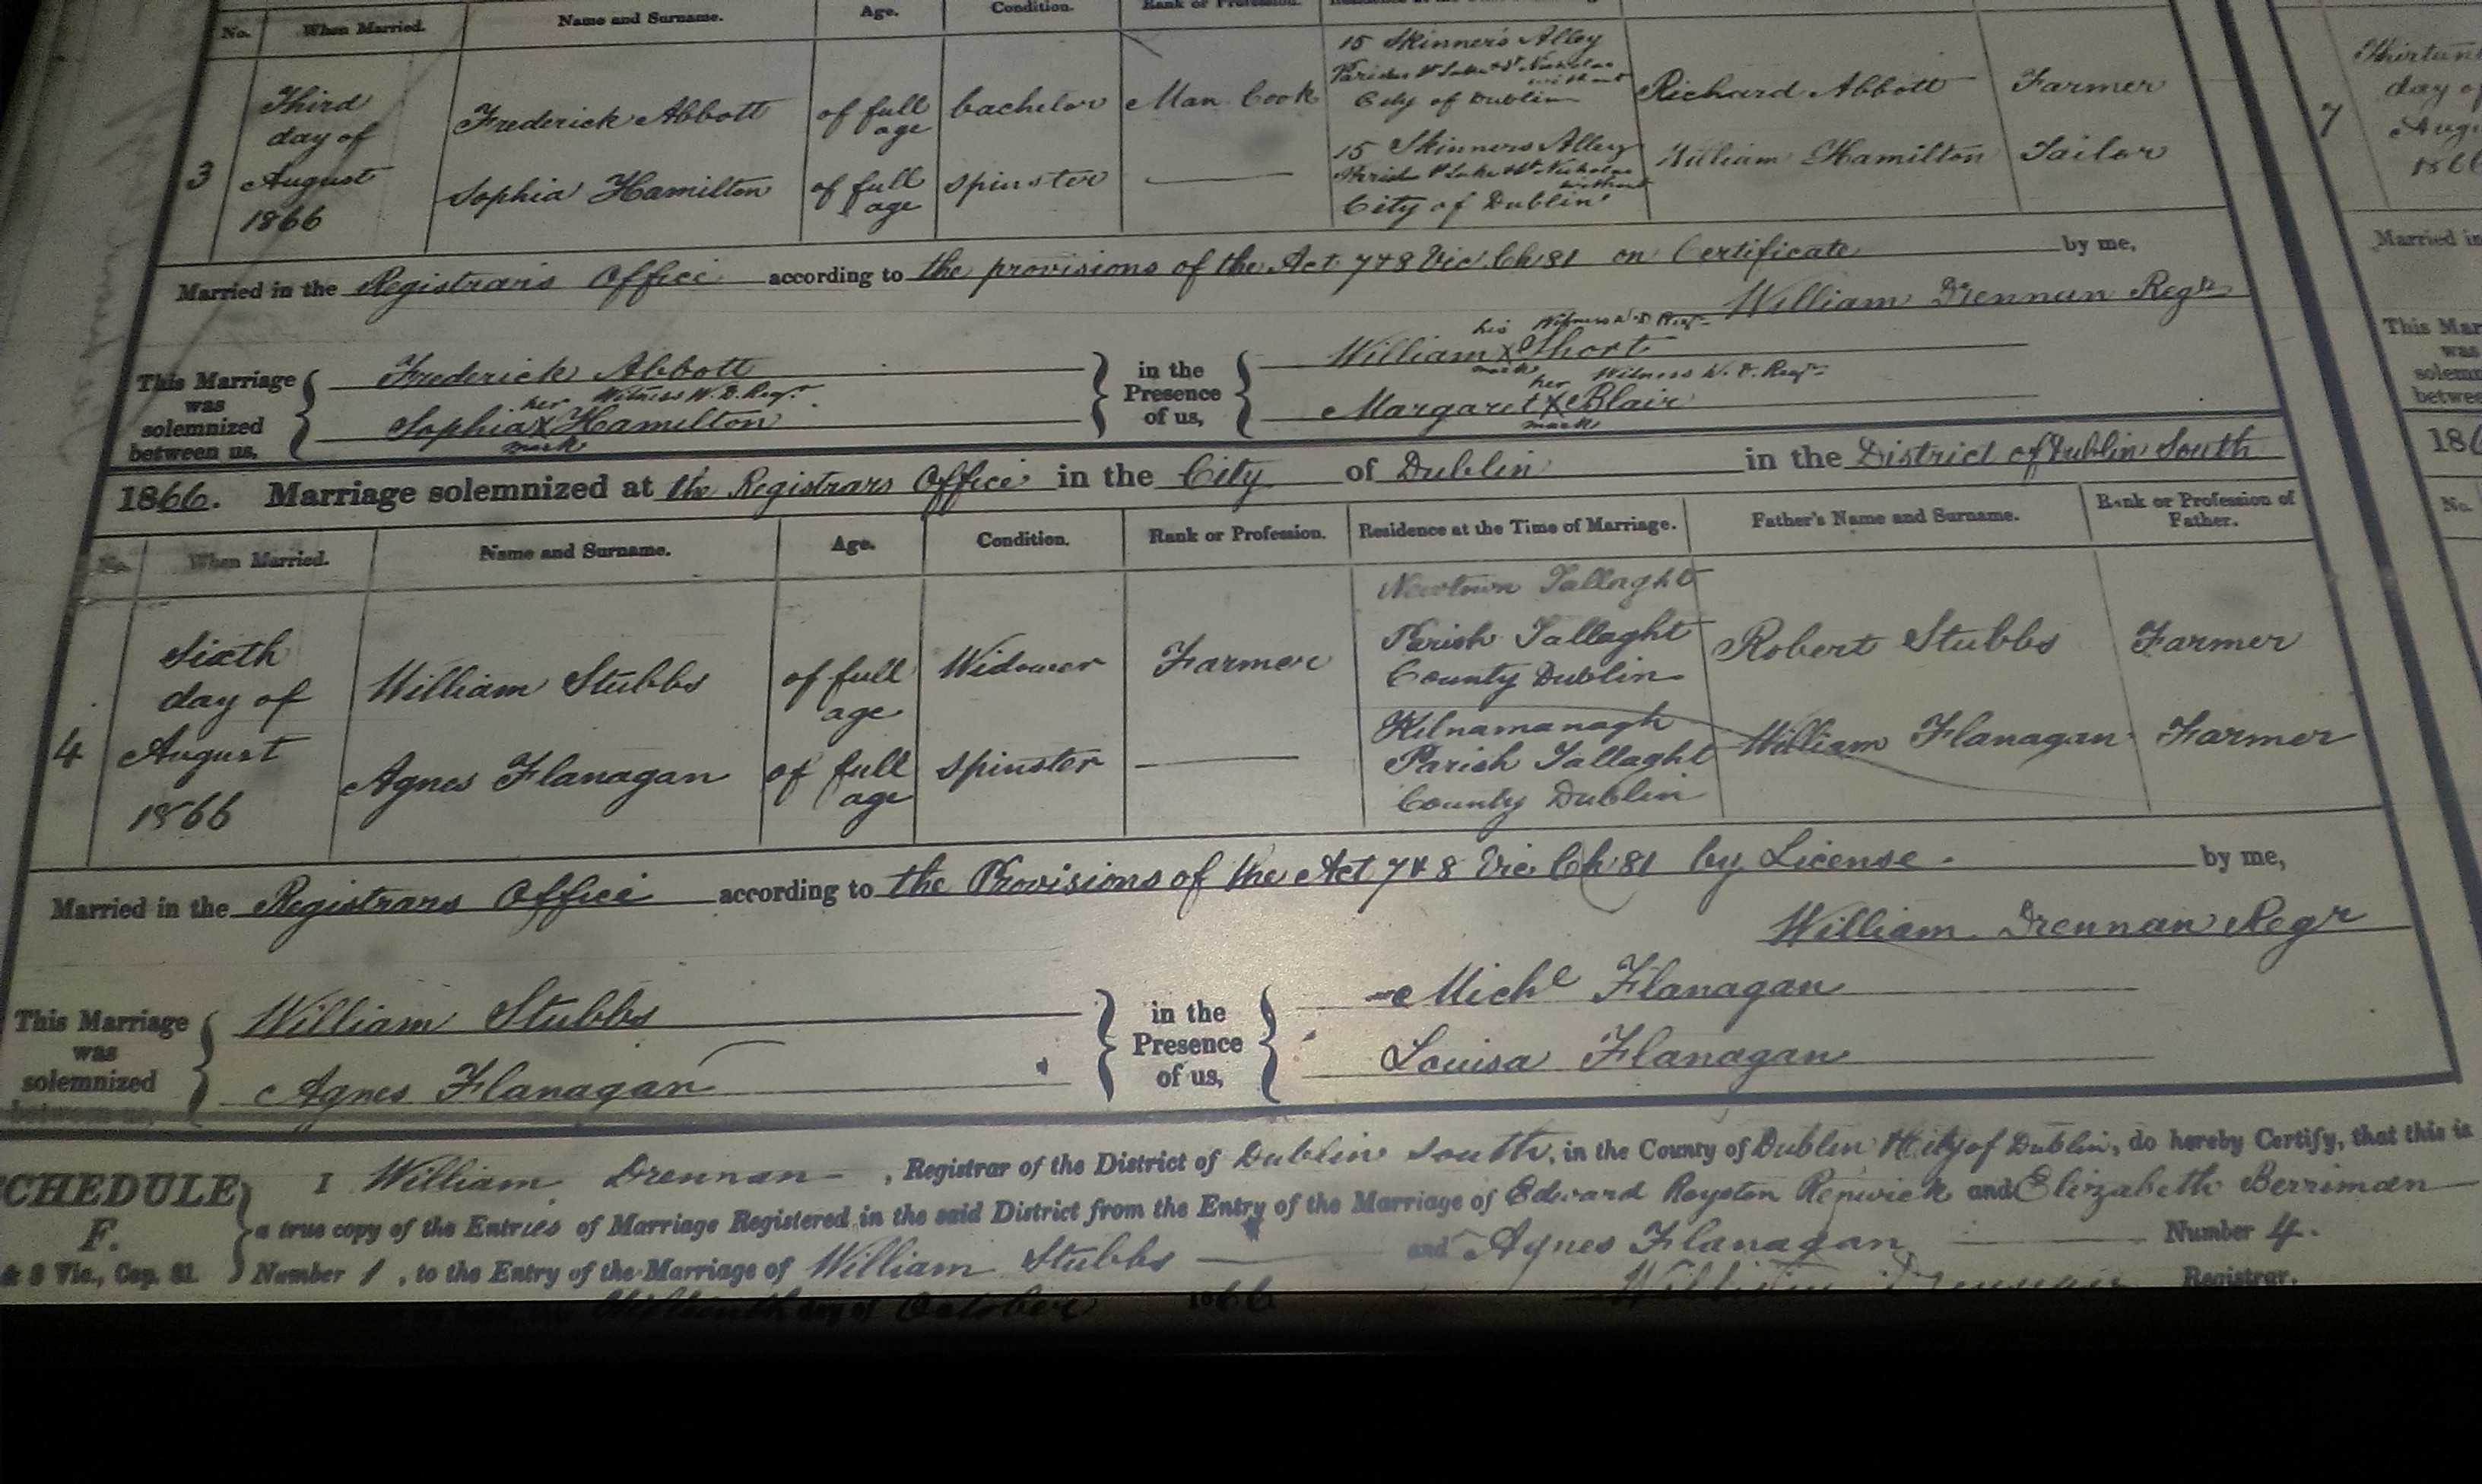 No. When Married. Name and Surname. Age. Condition. Rank or Profession.
Third day of August 1866
3
Frederick Abbott of full age bachelor Man Cook 15 Skinner's Alley Parishes St Luke & St Nicholas without City of Dublin Richard Abbott Farmer
Sophia Hamilton of full age spinster 15 Skinners Alley Parish St Luke & St Nicholas without City of Dublin William Hamilton Tailor
Married in the Registrar's Office according to the provisions of the Act 7 & 8 Vic. Ch 81 on Certificate by me,
William Drennan Regr
This Marriage was solemnized between us,
Frederick Abbott
Sophia her X mark Hamilton Witness W. D. Regr
in the Presence of us,
William his X mark Short Witness W. D. Regr
Margaret her X mark Blair Witness W. D. Regr
1866. Marriage solemnized at the Registrars Office in the City of Dublin in the District of Dublin South
No. When Married. Name and Surname. Age. Condition. Rank or Profession. Residence at the Time of Marriage. Father's Name and Surname. Rank or Profession of Father.
Sixth day of August 1866
4
William Stubbs of full age Widower Farmer Newtown Tallaght Parish Tallaght County Dublin Robert Stubbs Farmer
Agnes Flanagan of full age spinster Kilnamanagh Parish Tallaght County Dublin William Flanagan Farmer
Married in the Registrars Office according to the Provisions of the Act 7 & 8 Vic. Ch 81 by License. by me,
William Drennan Regr
This Marriage was solemnized between us,
William Stubbs
Agnes Flanagan
in the Presence of us,
Michl Flanagan
Louisa Flanagan
SCHEDULE F.
& 8 Vic., Cap. 81.
I William Drennan, Registrar of the District of Dublin South, in the County of Dublin & City of Dublin, do hereby Certify, that this is
a true copy of the Entries of Marriage Registered in the said District from the Entry of the Marriage of Edward Royston Renwick and Elizabeth Berriman
Number 1, to the Entry of the Marriage of William Stubbs and Agnes Flanagan Number 4.
day of October 1866 William Drennan Registrar.
7
day of
1866
Married in
This Mar
was
solemn
betwee
186
No.